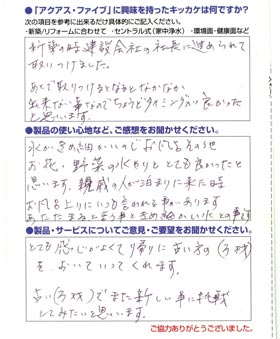 ●「アクアス・ファイブ」に興味を持ったキッカケは何ですか?
次の項目を参考に出来るだけ具体的にご記入ください。
・新築/リフォームに合わせて ・セントラル式(家中浄水) ・環境面・健康面など
新築の時建設会社の社長に進められて
取りつけました。
あとで取りつけるとなるとなかなか
出来ない事なのでちょうどタイミングが良かった
と思います。
●製品の使い心地など、ご感想をお聞かせください。
水がきめ細かいのでお
お花・野菜の水やりとても良かったと
思います。親戚の人が泊まりに来た時
お風呂上りにいつも言われる事があります
あたたまると言う事ときめ細かい水との事です
●製品・サービスについてご意見・ご要望をお聞かせください。
とても感じがよくて帰りに古い方の(ろ材)
をおいていってくれます。
古い(ろ材)でまた新しい事に挑戦
してみたいと思います。
ご協力ありがとうございました。